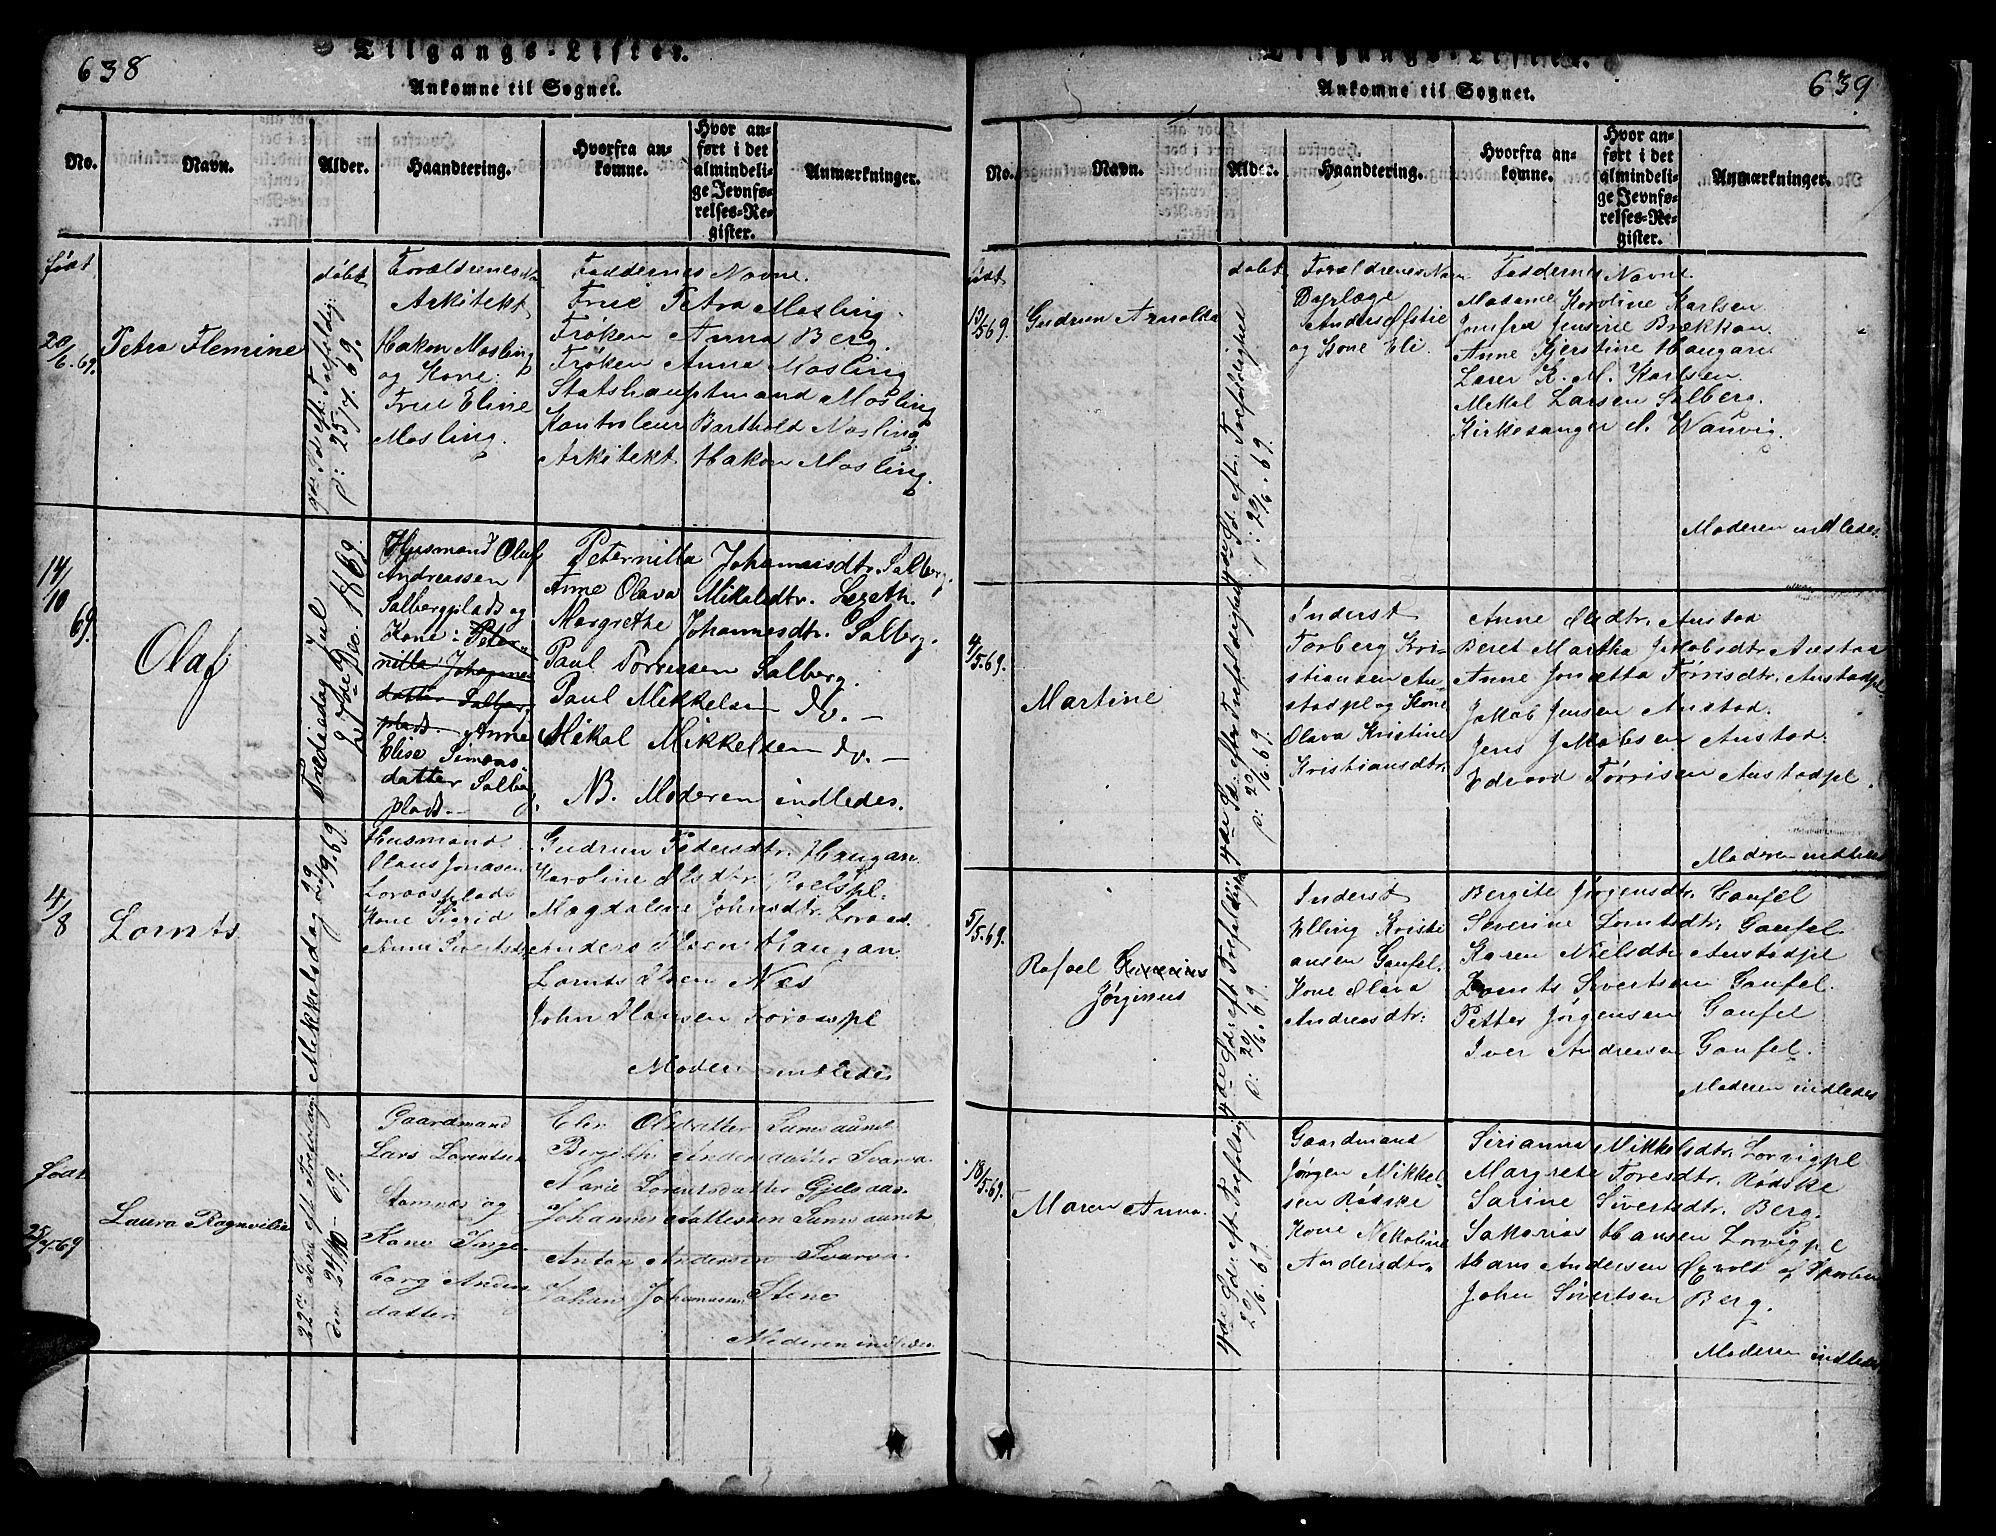 638
Tilgangs-Lister.
Ankomne til Sognet.
No.
Navn.
Alder.
Haandtering.
Hvorfra an-
komne.
Hvor an-
ført i det
almindeli-
ge Jevnfø-
relses-Re-
gister.
Anmærkninger.
født
døbt
Forældrenes Na
Faddernes Navne.
20/6. 69.
Petra Flemine
Sød eft: Trefoldig:
25/7. 69.
Arkitekt
Hakon Mosling
og Kone:
Frue Eline
Mosling.
Frue Petra Mosling.
Frøken Anna Berg.
Frøken Anna Mosling
Statshauptmand Mosling
Kontroleur Barthold Mosling
Arkitekt Hakon Mosling.
14/10
69.
Olaf
Trediedag Jul
27de Dec. 1869.
Husmand Oluf
Andreassen
Salbergplads og
Kone: Peter-
nilla Johannes
datter Salberg
plads. Anne
Elise Simons-
datter Salberg
plads.
Peternilla Johannesdtr. Salberg.
Anne Olava Mikalsdtr. Legeth.
Margrethe Johannesdtr. Salberg.
Paul Torressen Salberg.
Paul Mikkelsen do. —
Mikal Mikkelsen do. —
NB. Moderen indledes.
4/8
Lornts
Mikkelsdag 29/9. 69
Husmand
Olaus Jonasen
Loraasplads
Kone Sigrid
Anna Sivertsdtr
Gudrun Pedersdtr. Haugan.
Karoline Olsdtr. Roelspl.
Magdalene Johnsdtr. Loraas
Anders Olsen Haugan.
Lornts Olsen Næs
John Hansen Loraaspl
Moderen indledes
Født
25/7. 69
Laura Ragnvilie
22de Sønd eft Trefoldigh
den 24/10 - 69.
Gaardmand
Lars Lorentsen
Stamnes og
Kone Inge
borg Anders
datter
Elen Olsdatter Sumsaunet
Bergithe Andersdatter Svarva
Marie Lorentsdatter Gjelsaas
Johannes Sumsaunet
Anton Andersen Svarva
Johan Johannesen Stene
Moderen indledes
639
Tilgangs-Lister.
Ankomne til Sognet.
No.
Navn.
Alder.
Haandtering.
Hvorfra an-
komne.
Hvor an-
ført i det
almindeli-
ge Jevnfø-
relses-Re-
gister.
Anmærkninger.
født
døbt
Forældrenes Navn
Faddernes Navne
13/5 69.
Gudrun Arnolda
4de Sd. eft. Trefoldighed
p: 20/6. 69.
Anders Øfstie
og Kone Eli.
Madame Karoline Karlsen
Jomfru Jensine Brækkan
Anne Kjerstine Haugan.
Lærer K. M. Karlsen.
Mikal Larsen Salberg.
Kirkesanger A. Wanvig.
Moderen indledes.
4/5. 69.
Martine
4de Sd. efter Trefoldighed
p: 20/6. 69.
Inderst
Torberg Kri-
stiansen Au-
stadpl og Kone
Olava Kristine
Kristiansdtr.
Anne Olsdtr. Austad
Beret Martha Jakobsdtr Austad
Anne Jonetta Tørrisdtr. Austadpl
Jakob Jensen Austad.
Jens Jakobsen Austad.
Edvard Tørrisen Austadpl.
Moderen indledes
5/5. 69.
Rafael
Jørginus
4de Sd. eft. Trefoldighed
p: 20/6. 69.
Inderst
Elling Kristi
ansen Gaufel.
Kone Olava
Andreasdtr:
Bergite Jørgensdtr. Gaufel
Severine Lorntsdtr. Gaufel.
Karen Nielsdtr Austadpl
Lornts Sivertsen Gaufel.
Petter Jørgensen Gaufel
Iver Andreasen Gaufel.
Moderen indledes
18/5. 69.
Maren Anna.
4de Sd. eft. Trefoldig
20/6. 69.
Gaardmand
Jørgen Mikkel-
sen Rødske
Kone Nikoline
Andersdtr.
Sirianna Mikkelsdtr. Lorvigpl
Margrete Toresdtr. Rødske
Sarine Sivertsdtr. Berg.
Sakarias Hansen Lorvigpl
Hans Andersen Øxvold af Sparbu
John Sivertsen Berg.
Moderen indledes